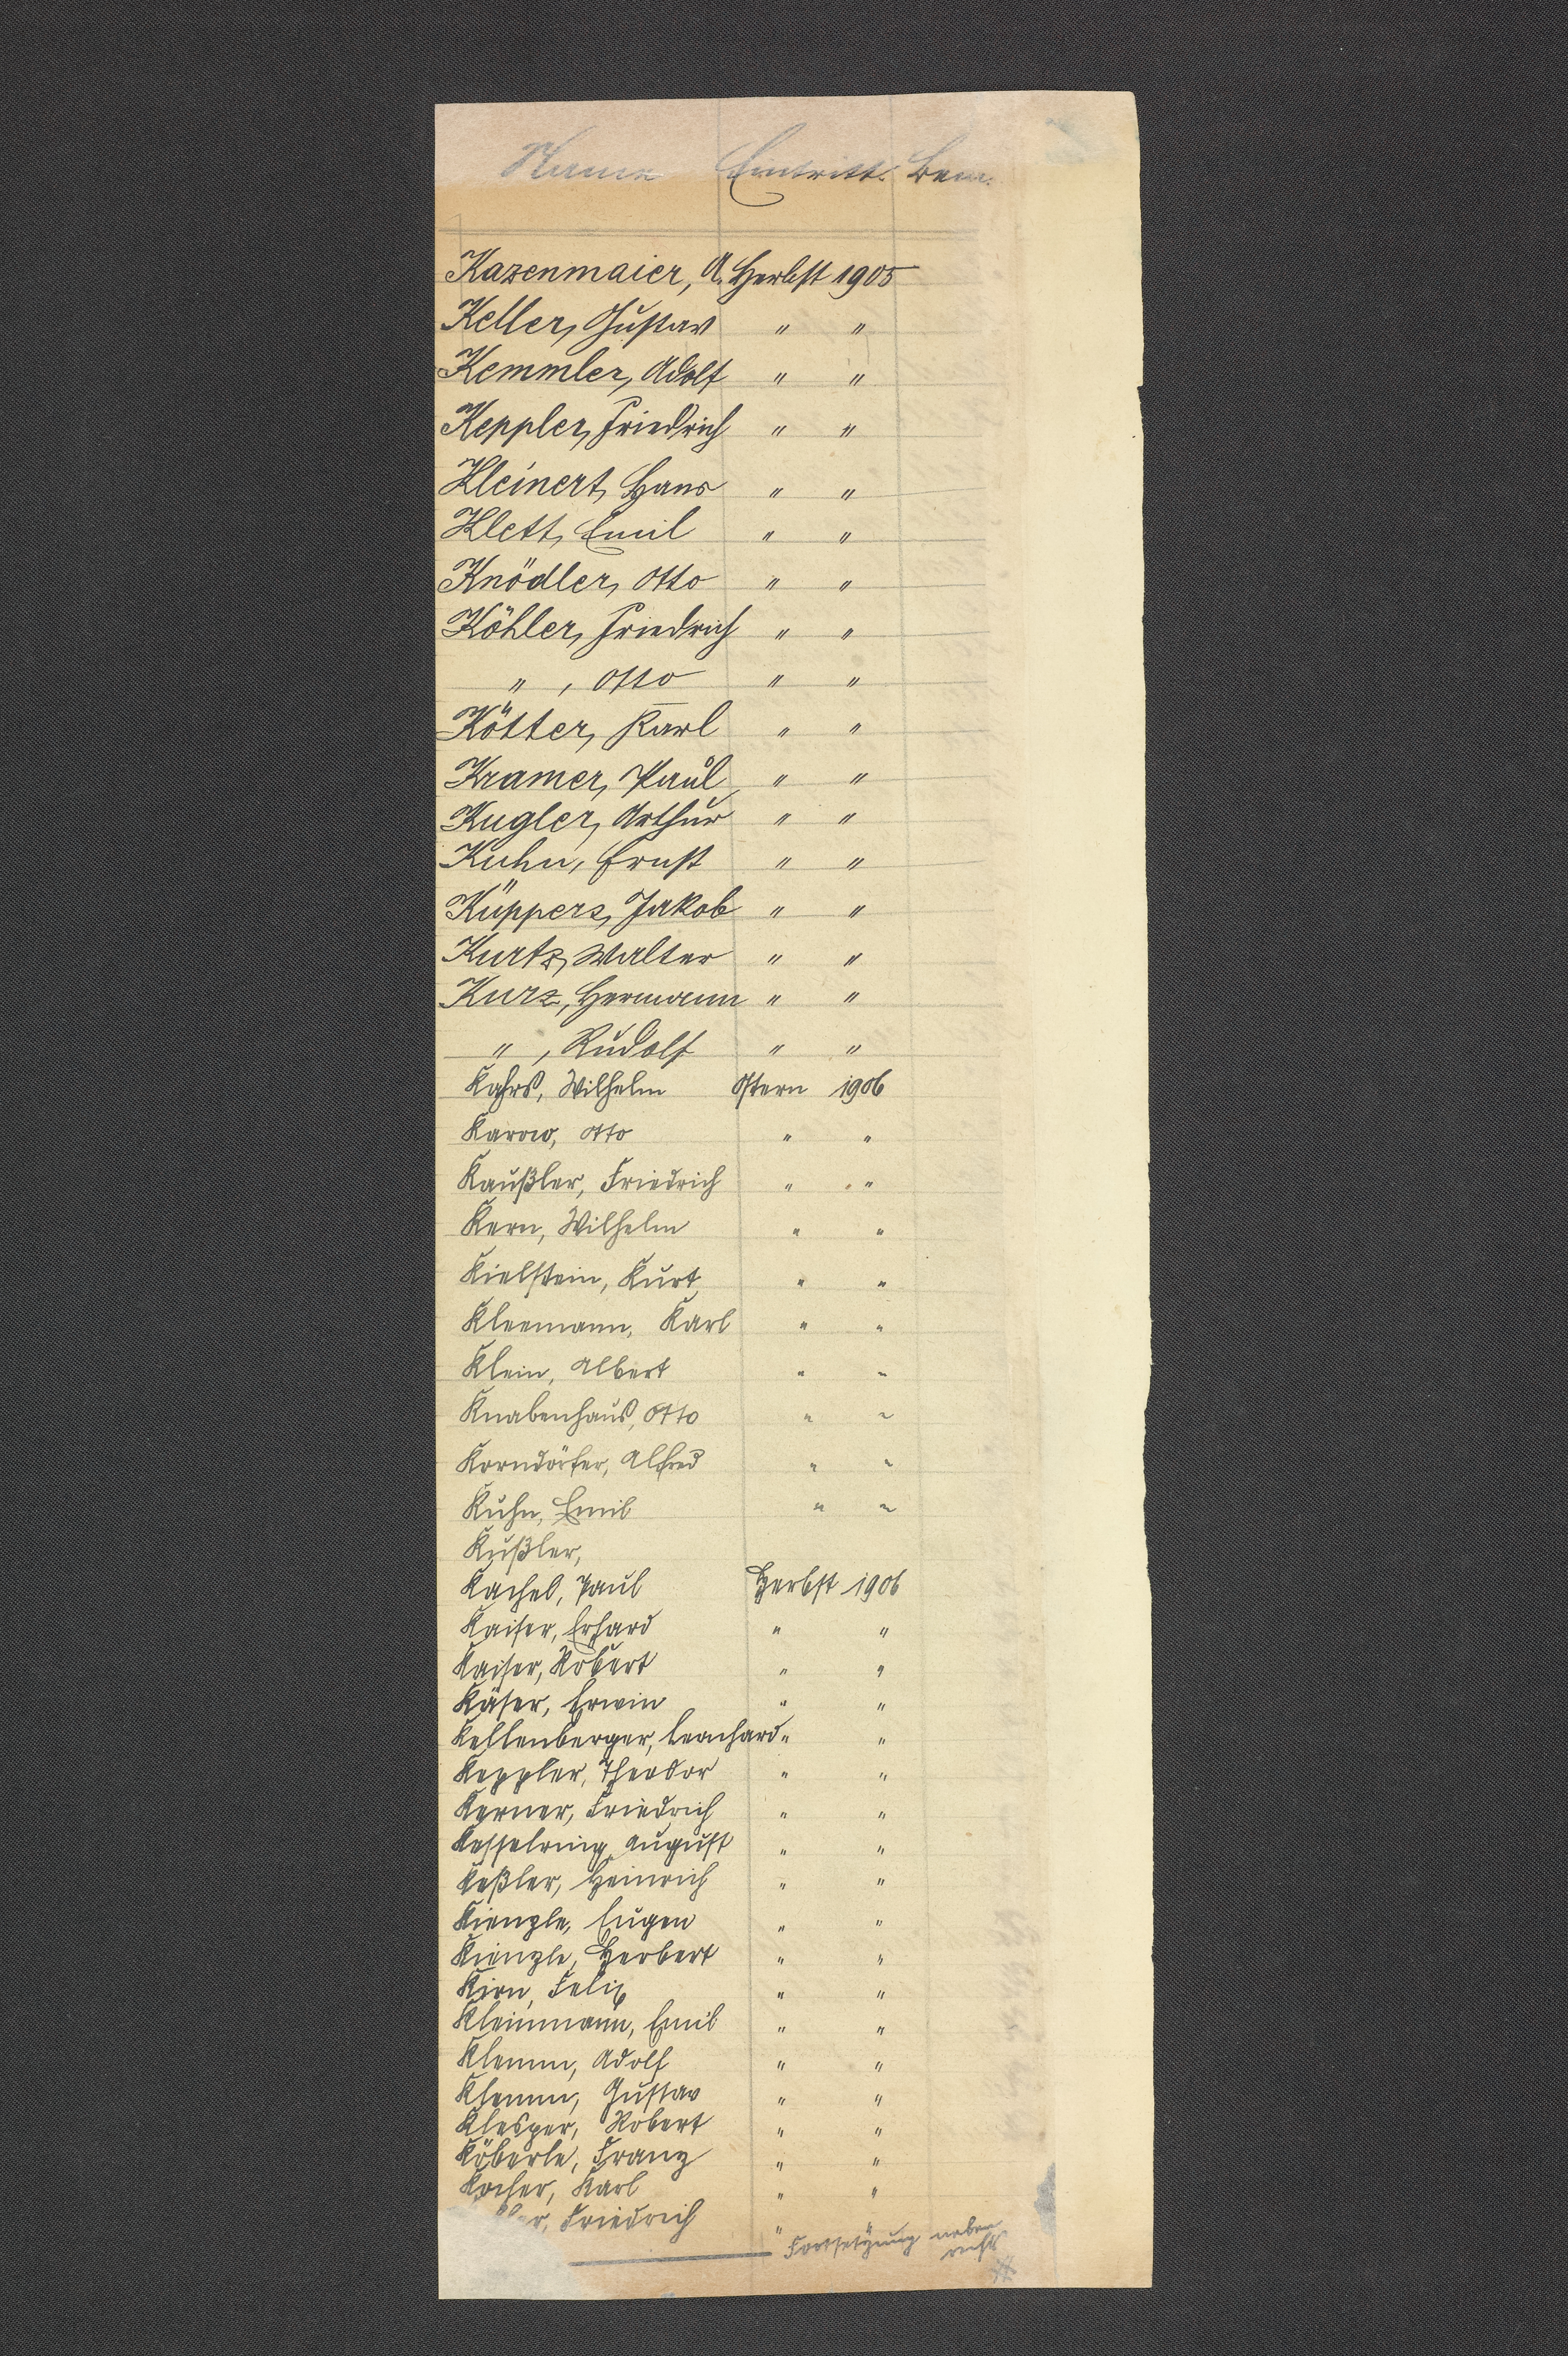 Name Eintritt. Bem.
Kazenmaier, A. Herbst 1905
Keller, Gustav " "
Kemmler, Adolf " "
Keppler, Friedrich " "
Kleinert, Hans " "
Klett, Emil " "
Knödler, Otto " "
Köhler, Friedrich " "
" , Otto " "
Kötter, Karl " "
Kramer, Paul " "
Kugler, Arthur " "
Kuhn, Ernst " "
Küppers, Jakob " "
Kurtz, Walter " "
Kurz, Hermann " "
" , Rudolf " "
Kahrs, Wilhelm Ostern 1906
Karow, Otto " "
Kaußler, Friedrich " "
Kern, Wilhelm " "
Kielstein, Kurt " "
Kleemann, Karl " "
Klein, Albert " "
Knabenhaus, Otto " "
Korndörfer, Alfred " "
Kuhn, Emil " "
Kußler,
Kachel, Paul Herbst 1906
Kaiser, Erhard " "
Kaiser, Robert " "
Käser, Erwin " "
Kellenberger, Leonhard " "
Keppler, Theodor " "
Kerner, Friedrich " "
Kesselring, August " "
Keßler, Heinrich " "
Kienzle, Eugen " "
Kienzle, Herbert " "
Kirn, Felix " "
Kleinmann, Emil " "
Klemm, Adolf " "
Klemm, Gustav " "
Klesper, Robert " "
Köberle, Franz " "
Kocher, Karl " "
Friedrich " "
Fortsetzung neben
rechts